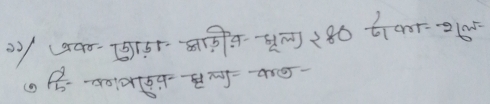 ১১/ এক জোড়া শাড়ীর মূল্য ২৪০ টাকা হলে
৩ টি কাপড়ের মূল্য কত